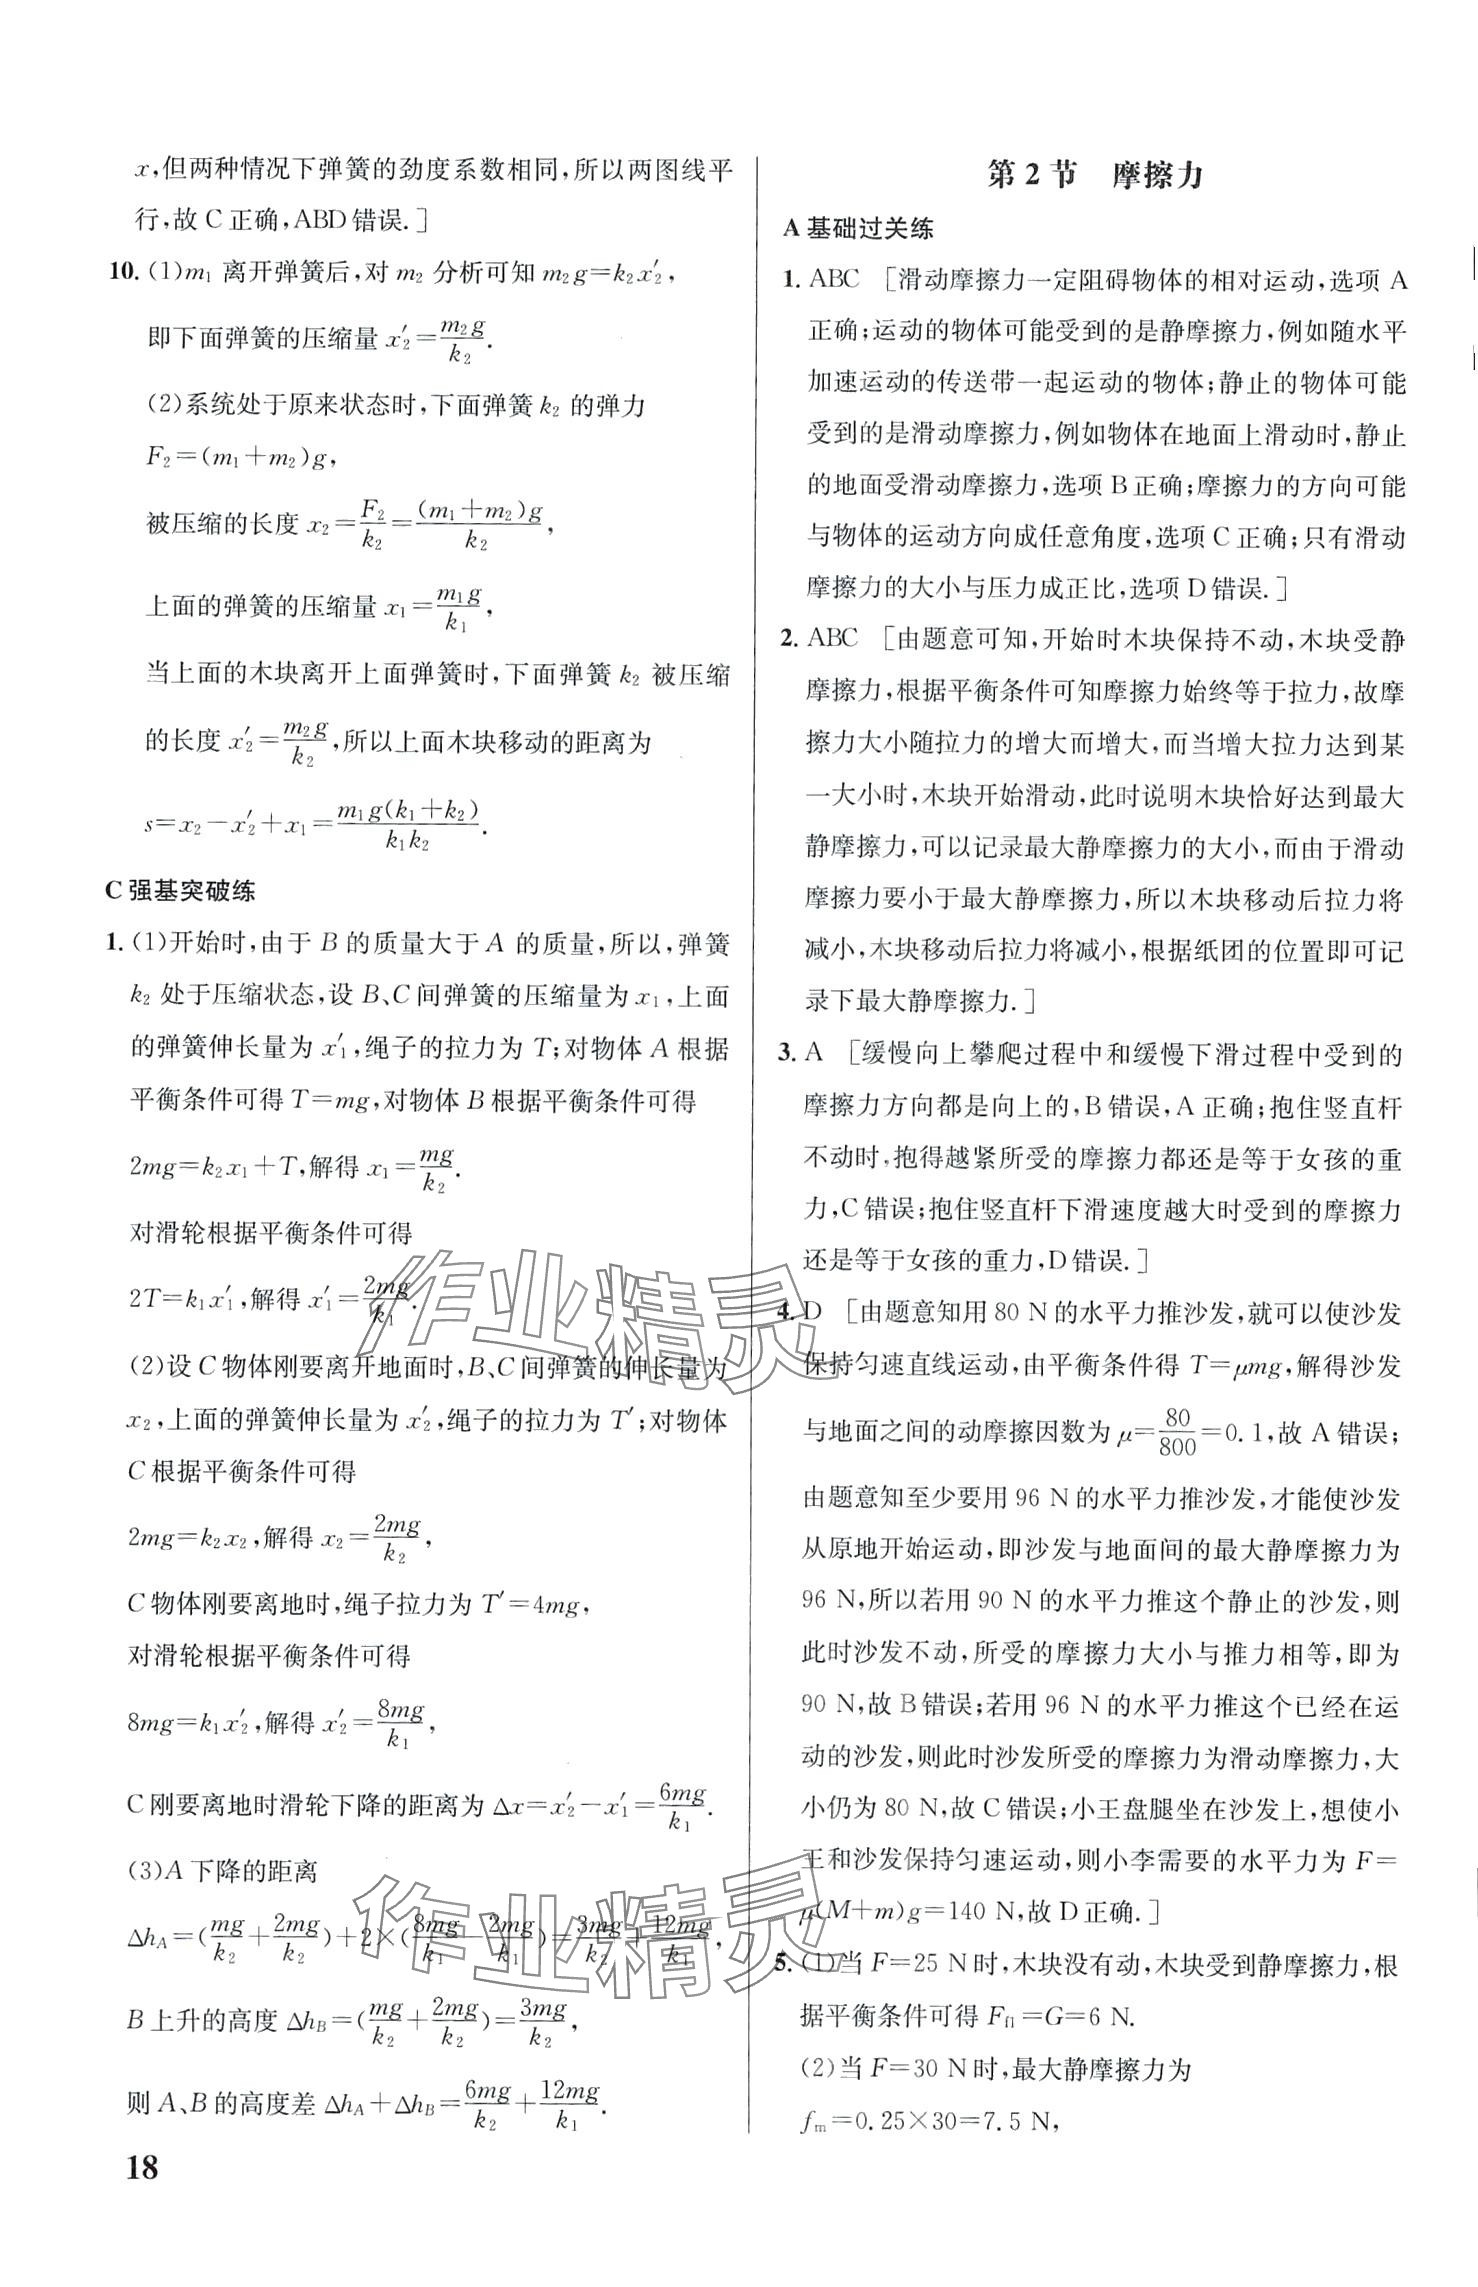 x,但两种情况下弹簧的劲度系数相同,所以两图线平
行,故 C 正确,ABD 错误.]
10. (1)m₁ 离开弹簧后,对 m₂ 分析可知 m₂g=k₂x₂′,
即下面弹簧的压缩量 x₂′=m₂g/k₂.
(2)系统处于原来状态时,下面弹簧 k₂ 的弹力
F₂=(m₁+m₂)g,
被压缩的长度 x₂=F₂/k₂=(m₁+m₂)g/k₂,
上面的弹簧的压缩量 x₁=m₁g/k₁,
当上面的木块离开上面弹簧时,下面弹簧 k₂ 被压缩
的长度 x₂′=m₂g/k₂,所以上面木块移动的距离为
s=x₂-x₂′+x₁=m₁g(k₁+k₂)/k₁k₂.
C 强基突破练
1. (1)开始时,由于 B 的质量大于 A 的质量,所以,弹簧
k₂ 处于压缩状态,设 B、C 间弹簧的压缩量为 x₁,上面
的弹簧伸长量为 x₁′,绳子的拉力为 T;对物体 A 根据
平衡条件可得 T=mg,对物体 B 根据平衡条件可得
2mg=k₂x₁+T,解得 x₁=mg/k₂.
对滑轮根据平衡条件可得
2T=k₁x₁′,解得 x₁′=2mg/k₁.
(2)设 C 物体刚要离开地面时,B、C 间弹簧的伸长量为
x₂,上面的弹簧伸长量为 x₂′,绳子的拉力为 T′;对物体
C 根据平衡条件可得
2mg=k₂x₂,解得 x₂=2mg/k₂,
C 物体刚要离地时,绳子拉力为 T′=4mg,
对滑轮根据平衡条件可得
8mg=k₁x₂′,解得 x₂′=8mg/k₁,
C 刚要离地时滑轮下降的距离为 Δx=x₂′-x₁′=6mg/k₁.
(3)A 下降的距离
Δh_A=(mg/k₂+2mg/k₂)+2×(8mg/k₁-2mg/k₁)=3mg/k₂+12mg/k₁,
B 上升的高度 Δh_B=(mg/k₂+2mg/k₂)=3mg/k₂,
则 A、B 的高度差 Δh_A+Δh_B=6mg/k₂+12mg/k₁.
18
第 2 节 摩擦力
A 基础过关练
1. ABC [滑动摩擦力一定阻碍物体的相对运动,选项 A
正确;运动的物体可能受到的是静摩擦力,例如随水平
加速运动的传送带一起运动的物体;静止的物体可能
受到的是滑动摩擦力,例如物体在地面上滑动时,静止
的地面受滑动摩擦力,选项 B 正确;摩擦力的方向可能
与物体的运动方向成任意角度,选项 C 正确;只有滑动
摩擦力的大小与压力成正比,选项 D 错误.]
2. ABC [由题意可知,开始时木块保持不动,木块受静
摩擦力,根据平衡条件可知摩擦力始终等于拉力,故摩
擦力大小随拉力的增大而增大,而当增大拉力达到某
一大小时,木块开始滑动,此时说明木块恰好达到最大
静摩擦力,可以记录最大静摩擦力的大小,而由于滑动
摩擦力要小于最大静摩擦力,所以木块移动后拉力将
减小,木块移动后拉力将减小,根据纸团的位置即可记
录下最大静摩擦力.]
3. A [缓慢向上攀爬过程中和缓慢下滑过程中受到的
摩擦力方向都是向上的,B 错误,A 正确;抱住竖直杆
不动时,抱得越紧所受的摩擦力都还是等于女孩的重
力,C 错误;抱住竖直杆下滑速度越大时受到的摩擦力
还是等于女孩的重力,D 错误.]
4. D [由题意知用 80 N 的水平力推沙发,就可以使沙发
保持匀速直线运动,由平衡条件得 T=μmg,解得沙发
与地面之间的动摩擦因数为 μ=80/800=0.1,故 A 错误;
由题意知至少要用 96 N 的水平力推沙发,才能使沙发
从原地开始运动,即沙发与地面间的最大静摩擦力为
96 N,所以若用 90 N 的水平力推这个静止的沙发,则
此时沙发不动,所受的摩擦力大小与推力相等,即为
90 N,故 B 错误;若用 96 N 的水平力推这个已经在运
动的沙发,则此时沙发所受的摩擦力为滑动摩擦力,大
小仍为 80 N,故 C 错误;小王盘腿坐在沙发上,想使小
王和沙发保持匀速运动,则小李需要的水平力为 F=
μ(M+m)g=140 N,故 D 正确.]
5. (1)当 F=25 N 时,木块没有动,木块受到静摩擦力,根
据平衡条件可得 F_f1=G=6 N.
(2)当 F=30 N 时,最大静摩擦力为
f_m=0.25×30=7.5 N,
作业精灵
作业精灵